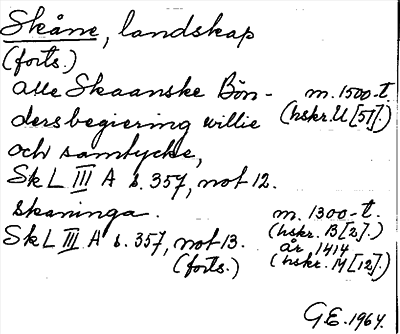 Skåne, landskap
(forts.)
alle Skaanske Bön- m. 1500-t.
ders begiering willie (hskr. U [51].)
och samtycke,
Sk L III A s. 357, not 12.
skaninga. m. 1300-t.
Sk L III A s. 357, not 13. (hskr. B [2].)
år 1414
(forts.) (hskr. M [12].)
G E. 1964.